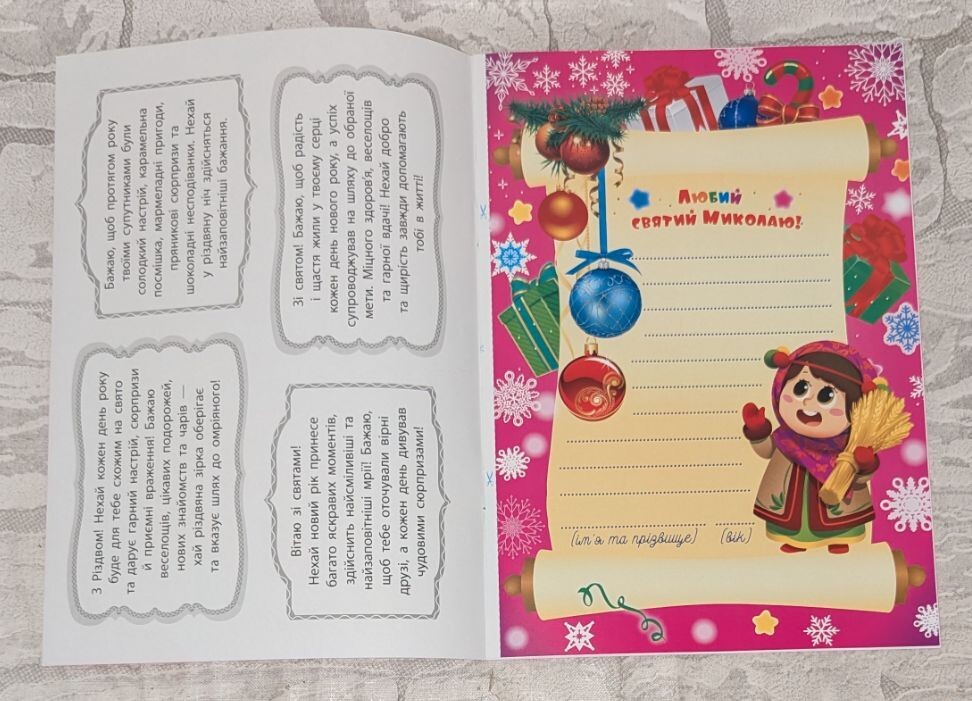 Бажаю, щоб протягом року
твоїми супутниками були
солодкий настрій, карамельна
посмішка, мармеладні пригоди,
пряникові сюрпризи та
шоколадні несподіванки. Нехай
у різдвяну ніч здійсняться
найзаповітніші бажання.
Зі святом! Бажаю, щоб радість
і щастя жили у твоєму серці
кожен день нового року, а успіх
супроводжував на шляху до обраної
мети. Міцного здоров'я, веселощів
та гарної вдачі! Нехай добро
та щирість завжди допомагають
тобі в житті!
З Різдвом! Нехай кожен день року
буде для тебе схожим на свято
та дарує гарний настрій, сюрпризи
й приємні враження! Бажаю
веселощів, цікавих подорожей,
нових знайомств та чарів —
хай різдвяна зірка оберігає
та вказує шлях до омріяного!
Вітаю зі святами!
Нехай новий рік принесе
багато яскравих моментів,
здійснить найсміливіші та
найзаповітніші мрії! Бажаю,
щоб тебе оточували вірні
друзі, а кожен день дивував
чудовими сюрпризами!
Любий
святий Миколаю!
(ім'я та прізвище) (вік)